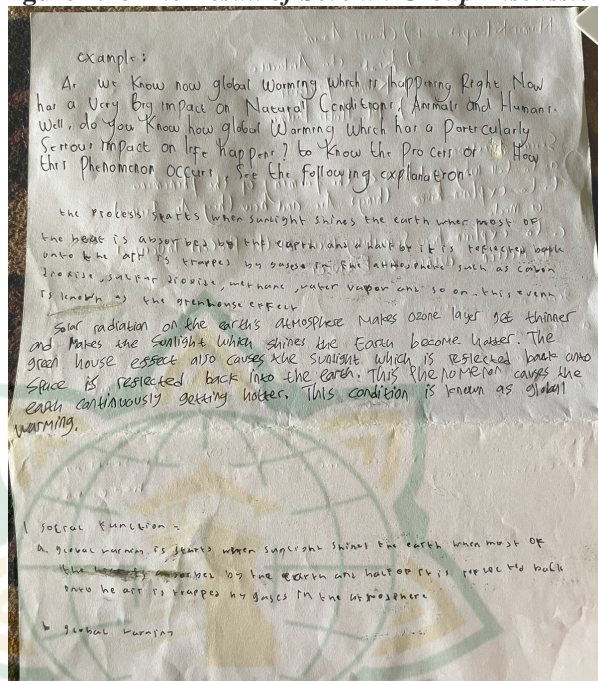 example:
As we Know now global Worming which is happening Right Now
has a Very Big impact on Natural Conditions, Animals and Humans.
Well, do You Know how global Warming which has a Particularly
Serious impact on life happens? to Know the Process or How
this Phenomenon occurs, See the following explanation.
the Process starts when sunlight shines the earth wher most of
the heat is absorbed by the earth and a half of it is reflected back
onto the air is trapped by gases in the atmosphere such as
dioxide, sulfur dioxide, methane, water vapor and so on. this
is known as the grenhouse effect
Solar radiation on the earth's atmosphere Makes ozone layer get thinner
and Makes the Sunlight which shines the Earth become hotter. The
green house effect also causes the sunlight which is reflected back onto
space is reflected back into the earth. This Phenomenon causes the
earth continuously getting hotter. This condition is known as global
warming.
1 social function =
a. global is starts when sunlight shines the earth when most of
the by the earth and half of it is reflected back
onto he air is trapped by gases in the atmosphere
b global warming